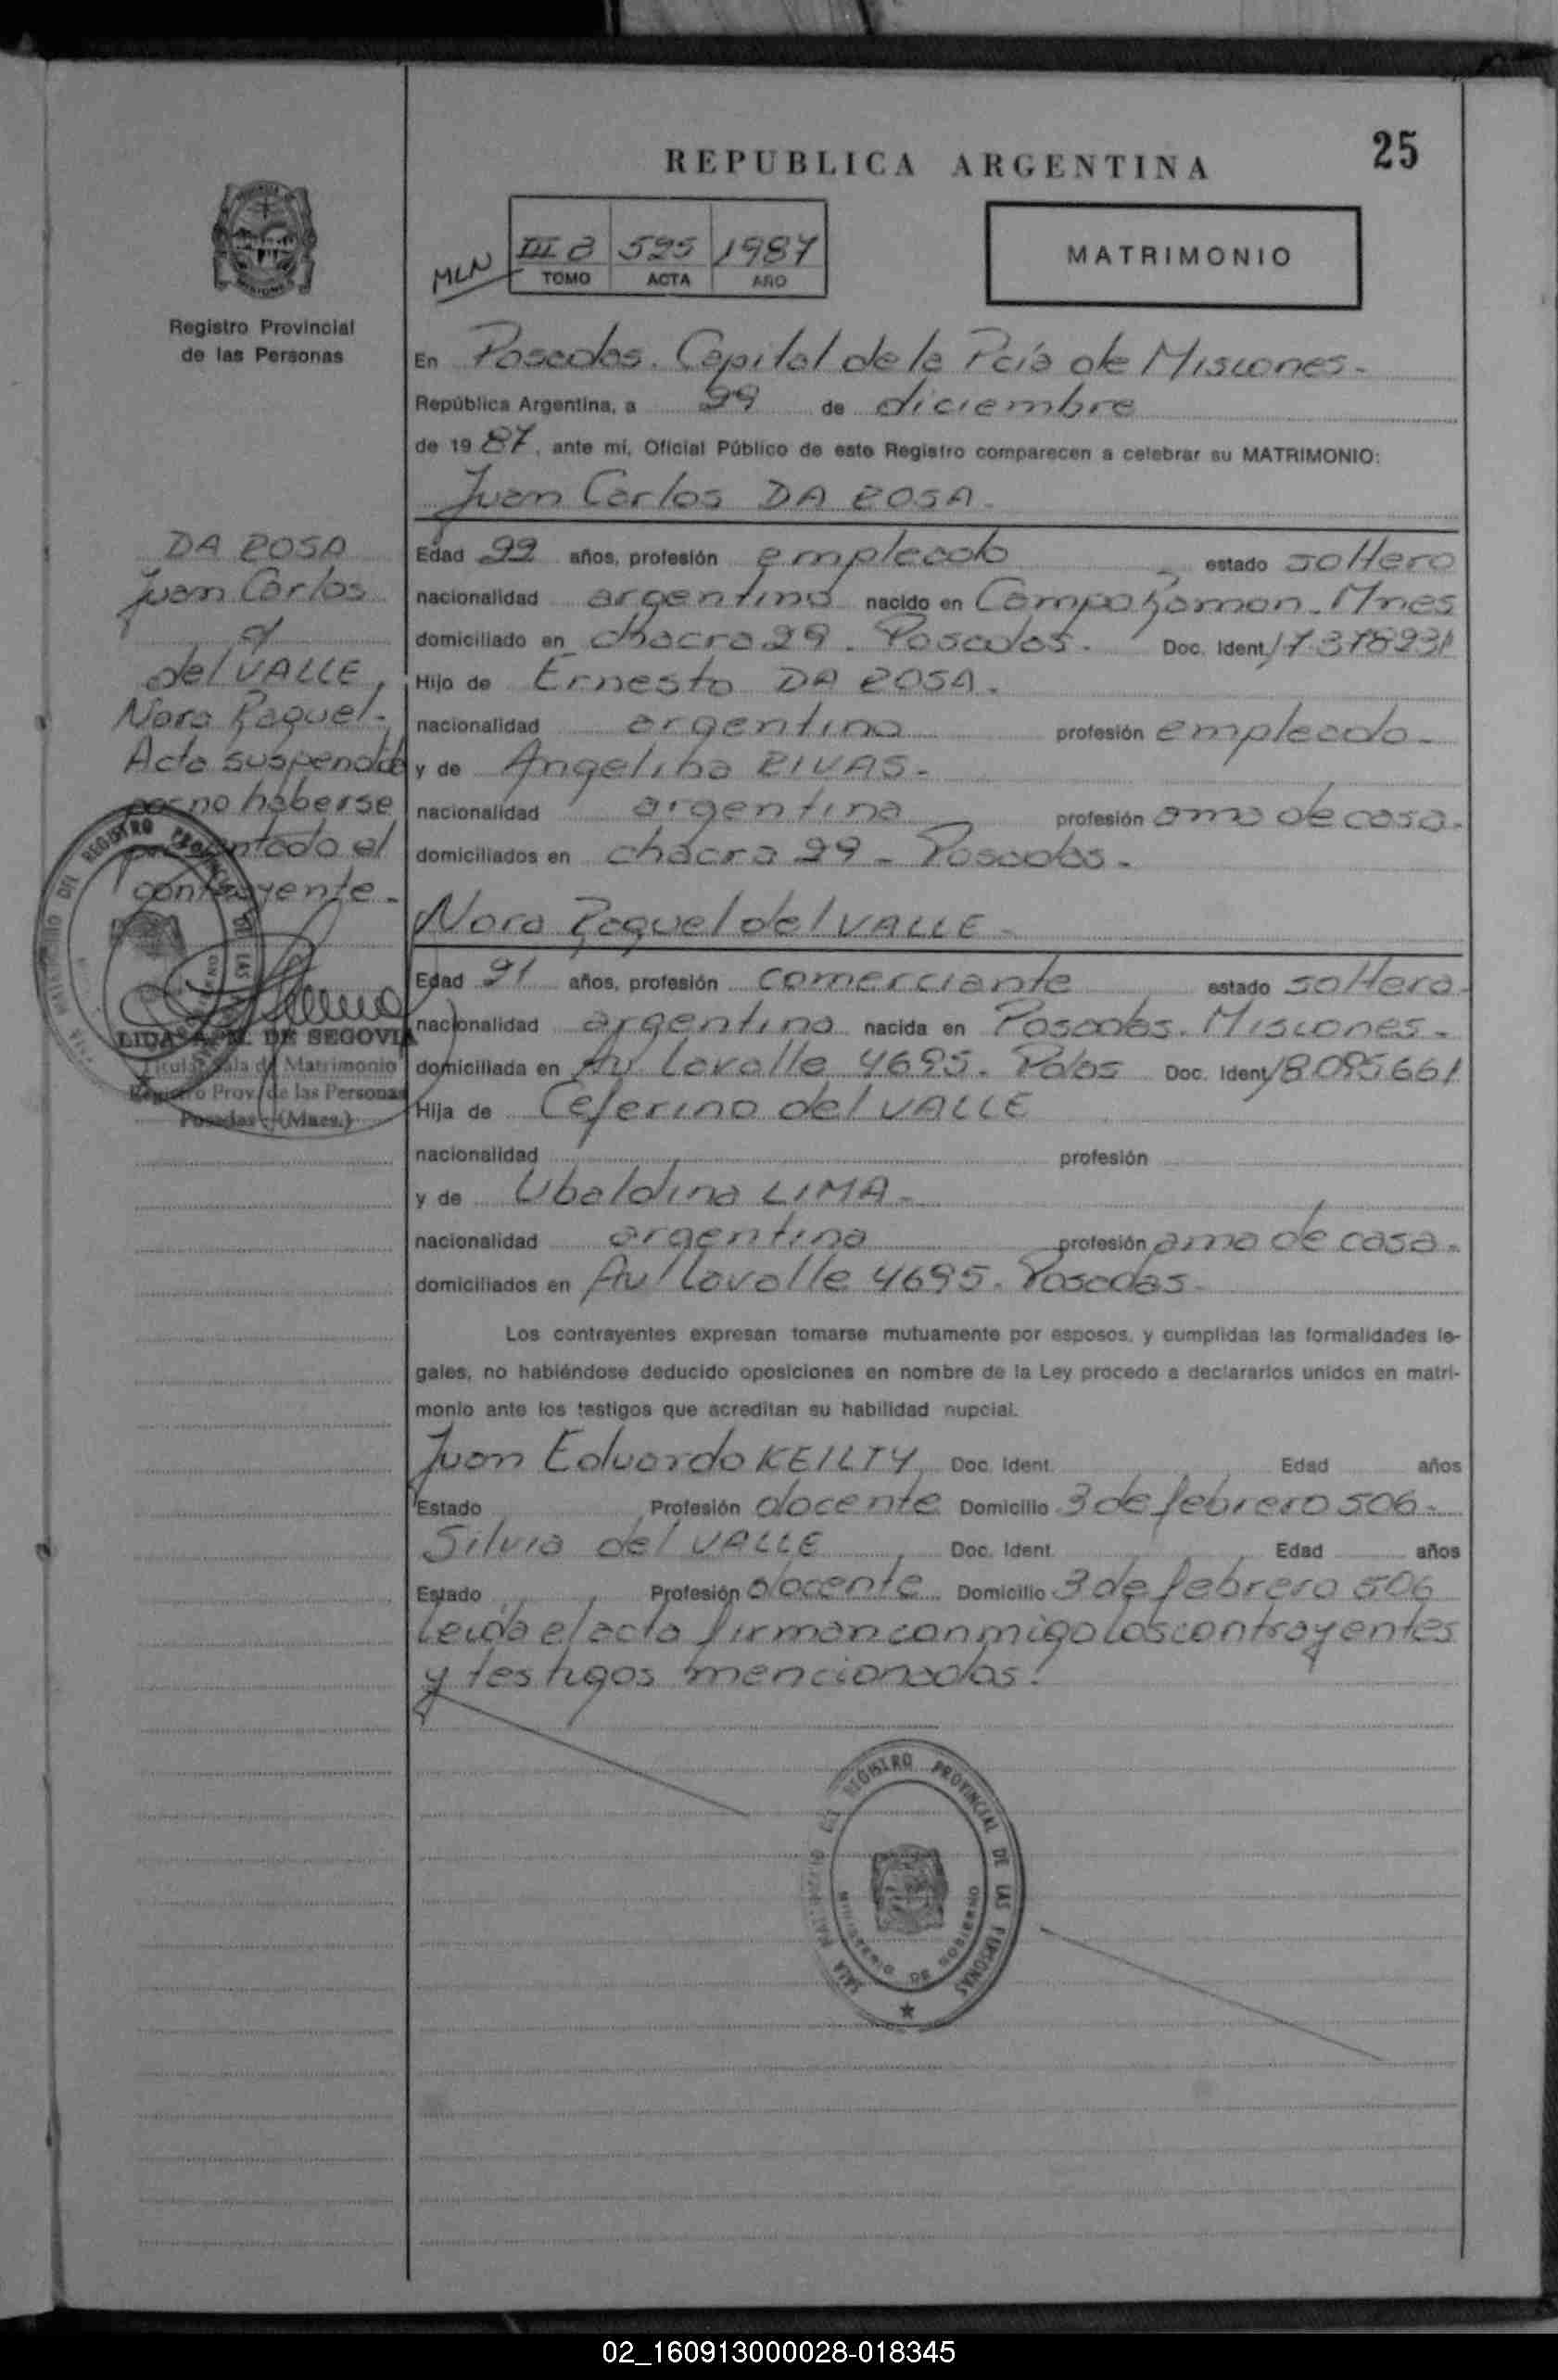 25
REPUBLICA ARGENTINA
MLN
III B 595 1987
TOMO ACTA AÑO
MATRIMONIO
Registro Provincial
de las Personas
En Posadas. Capital de la Pcia de Misiones.
República Argentina, a 29 de diciembre
de 19 87, ante mi, Oficial Público de este Registro comparecen a celebrar su MATRIMONIO:
Juan Carlos DA ROSA.
DA ROSA
Juan Carlos
c/
del VALLE,
Nora Raquel.
Acta suspendida
por no haberse
presentado el
contrayente.
LIDA DE SEGOVIA
Titular Sala de Matrimonio
Registro Prov. de las Personas
Posadas (Mnes.)
Edad 22 años, profesión empleado estado soltero
nacionalidad argentino nacido en Campo Ramon. Mnes
domiciliado en chacra 29. Posadas. Doc. Ident. 17378231
Hijo de Ernesto DA ROSA.
nacionalidad argentino profesión empleado.
y de Angelina RIVAS.
nacionalidad argentina profesión ama de casa.
domiciliados en chacra 29 - Posadas.
Nora Raquel del VALLE.
Edad 21 años, profesión comerciante estado soltera.
nacionalidad argentina nacida en Posadas. Misiones.
domiciliada en Av Lavalle 4695. Pdas Doc. Ident. 18095661
Hija de Ceferino del VALLE
nacionalidad profesión
y de Ubaldina LIMA.
nacionalidad argentina profesión ama de casa.
domiciliados en Av Lavalle 4695. Posadas.
Los contrayentes expresan tomarse mutuamente por esposos, y cumplidas las formalidades le-
gales, no habiéndose deducido oposiciones en nombre de la Ley procedo a declararlos unidos en matri-
monio ante los testigos que acreditan su habilidad nupcial.
Juan Eduardo KEILTY Doc. Ident. Edad años
Estado Profesión docente Domicilio 3 de febrero 506.
Silvia del VALLE Doc. Ident. Edad años
Estado Profesión docente Domicilio 3 de febrero 506
Leida el acta firman conmigo los contrayentes
y testigos mencionados.
SALA MATRIMONIO DEL REGISTRO PROVINCIAL DE LAS PERSONAS
MINISTERIO DE GOBIERNO
02_160913000028-018345